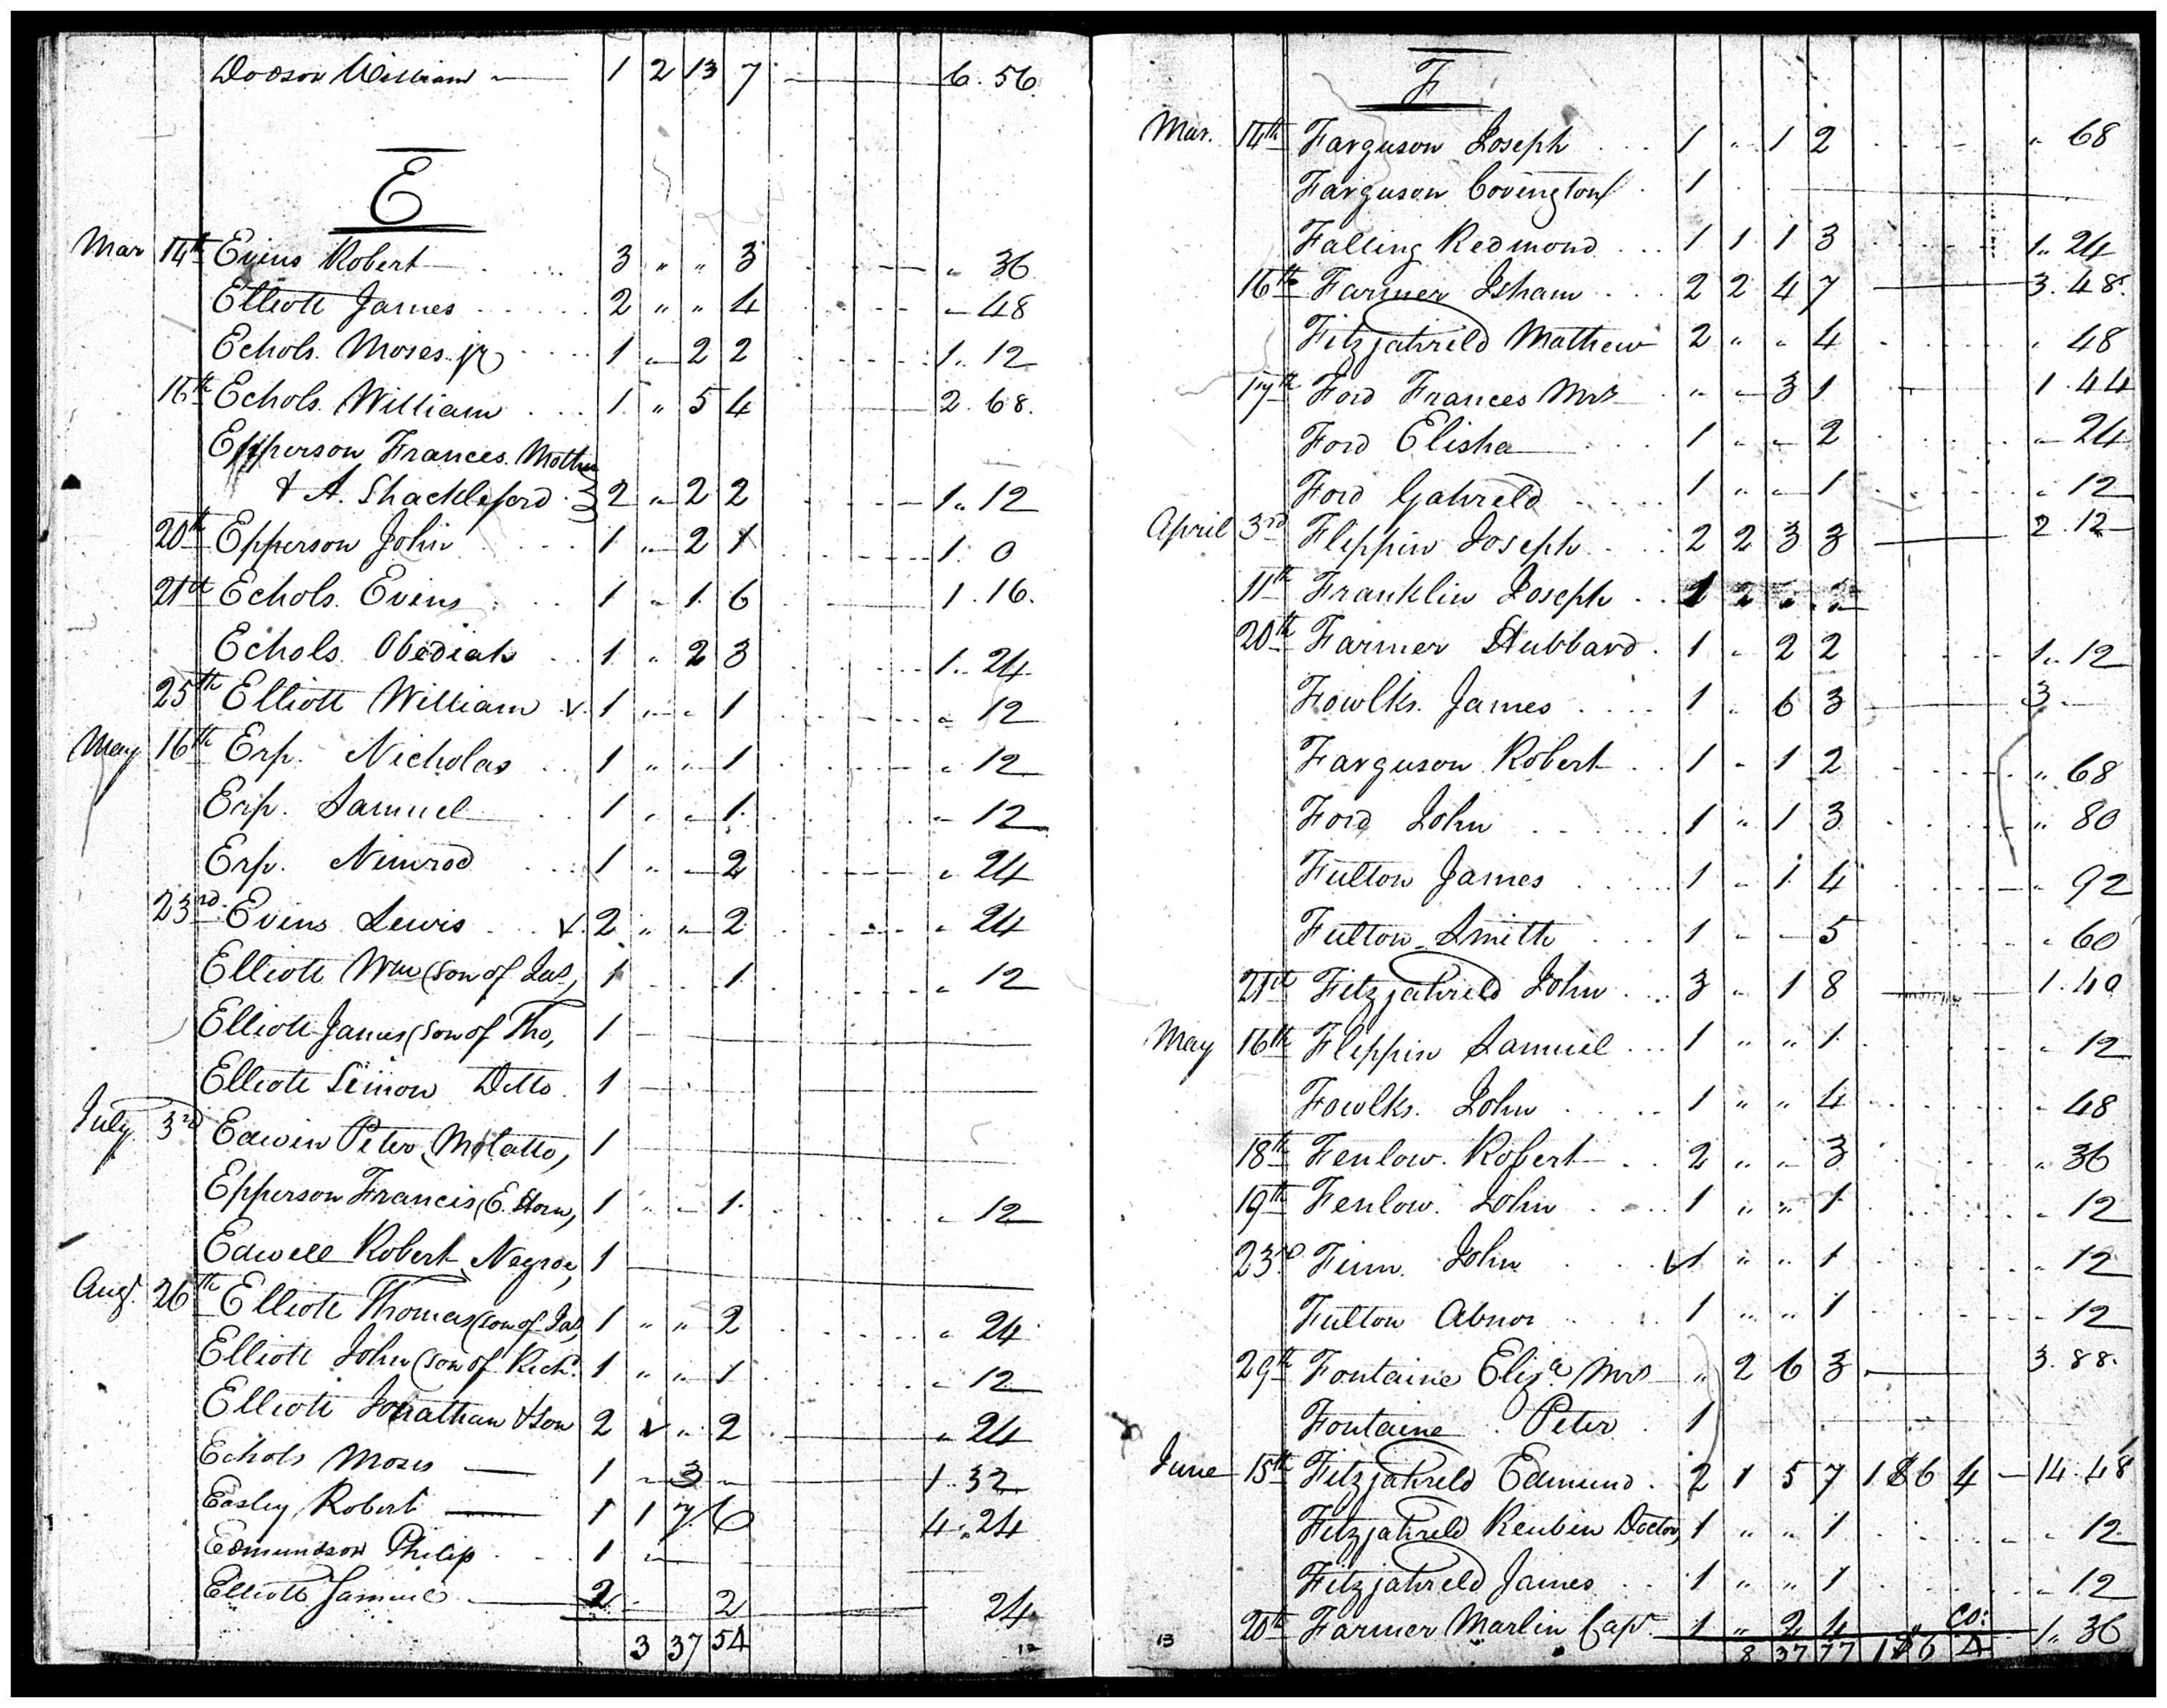 Dodson William 1 2 13 7 6.56
E
Mar 14th Evins Robert 3 " " 3 " 36
Elliott James 2 " " 4 " 48
Echols Moses jr 1 " 2 2 1.12
16th Echols William 1 " 5 4 2.68
Epperson Frances Mother
& A. Shackleford 2 " 2 2 1.12
20th Epperson John 1 " 2 1 1. 0
21st Echols Evins 1 " 1 6 1.16
Echols Obediah 1 " 2 3 1.24
25th Elliott William v 1 " " 1 " 12
May 16th Erp. Nicholas 1 " " 1 " 12
Erp. Samuel 1 " " 1 " 12
Erp. Nimrod 1 " " 2 " 24
23rd Evins Lewis v 2 " " 2 " 24
Elliott Wm (son of Jas, 1 " " 1 " 12
Elliott James (son of Tho, 1
Elliott Simon Ditto 1
July 3rd Edwin Peter, Molatto, 1
Epperson Francis (E. Horn, 1 " " 1 " 12
Edwell Robert, Negroe, 1
Augt. 26th Elliott Thomas (son of Jas, 1 " " 2 " 24
Elliott John (son of Richd. 1 " " 1 " 12
Elliott Jonathan & son 2 v " 2 " 24
Echols Moses 1 " 3 " 1.32
Easley Robert 1 1 7 6 4.24
Edmundson Philip 1 "
Elliott Samuel 2 " 2 24
3 37 54
12
F
Mar. 14th Farguson Joseph 1 " 1 2 " 68
Farguson Covington 1
Falling Redmond 1 1 1 3 1.24
16th Farmer Isham 2 2 4 7 3.48
Fitzjahreld Mathew 2 " " 4 " 48
17th Ford Frances Mrs " " 3 1 1.44
Ford Elisha 1 " " 2 " 24
Ford Gahreld 1 " " 1 " 12
April 3rd Flippin Joseph 2 2 3 3 2.12
11th Franklin Joseph 1 2 " 2
20th Farmer Hubbard 1 " 2 2 1.12
Fowlks. James 1 " 6 3 3
Farguson Robert 1 " 1 2 " 68
Ford John 1 " 1 3 " 80
Fulton James 1 " 1 4 " 92
Fulton Smith 1 " " 5 " 60
21st Fitzjahreld John 3 " 1 8 1.40
May 16th Flippin Samuel 1 " " 1 " 12
Fowlks. John 1 " " 4 " 48
18th Fenlow. Robert 2 " " 3 " 36
19th Fenlow. John 1 " " 1 " 12
23d. Finn. John v 1 " " 1 " 12
Fulton Abnor 1 " " 1 " 12
29th Fontaine Eliza Mrs " 2 6 3 3.88
Fontaine Peter 1
June 15th Fitzjahreld Edmund 2 1 5 7 1 $6 4 14.48
Fitzjahreld Reubin Doctor, 1 " " 1 " 12
Fitzjahreld James 1 " " 1 " 12
20th Farmer Marlin Capt 1 " 2 4 " co: 1.36
13
8 37 77 1 $6 4